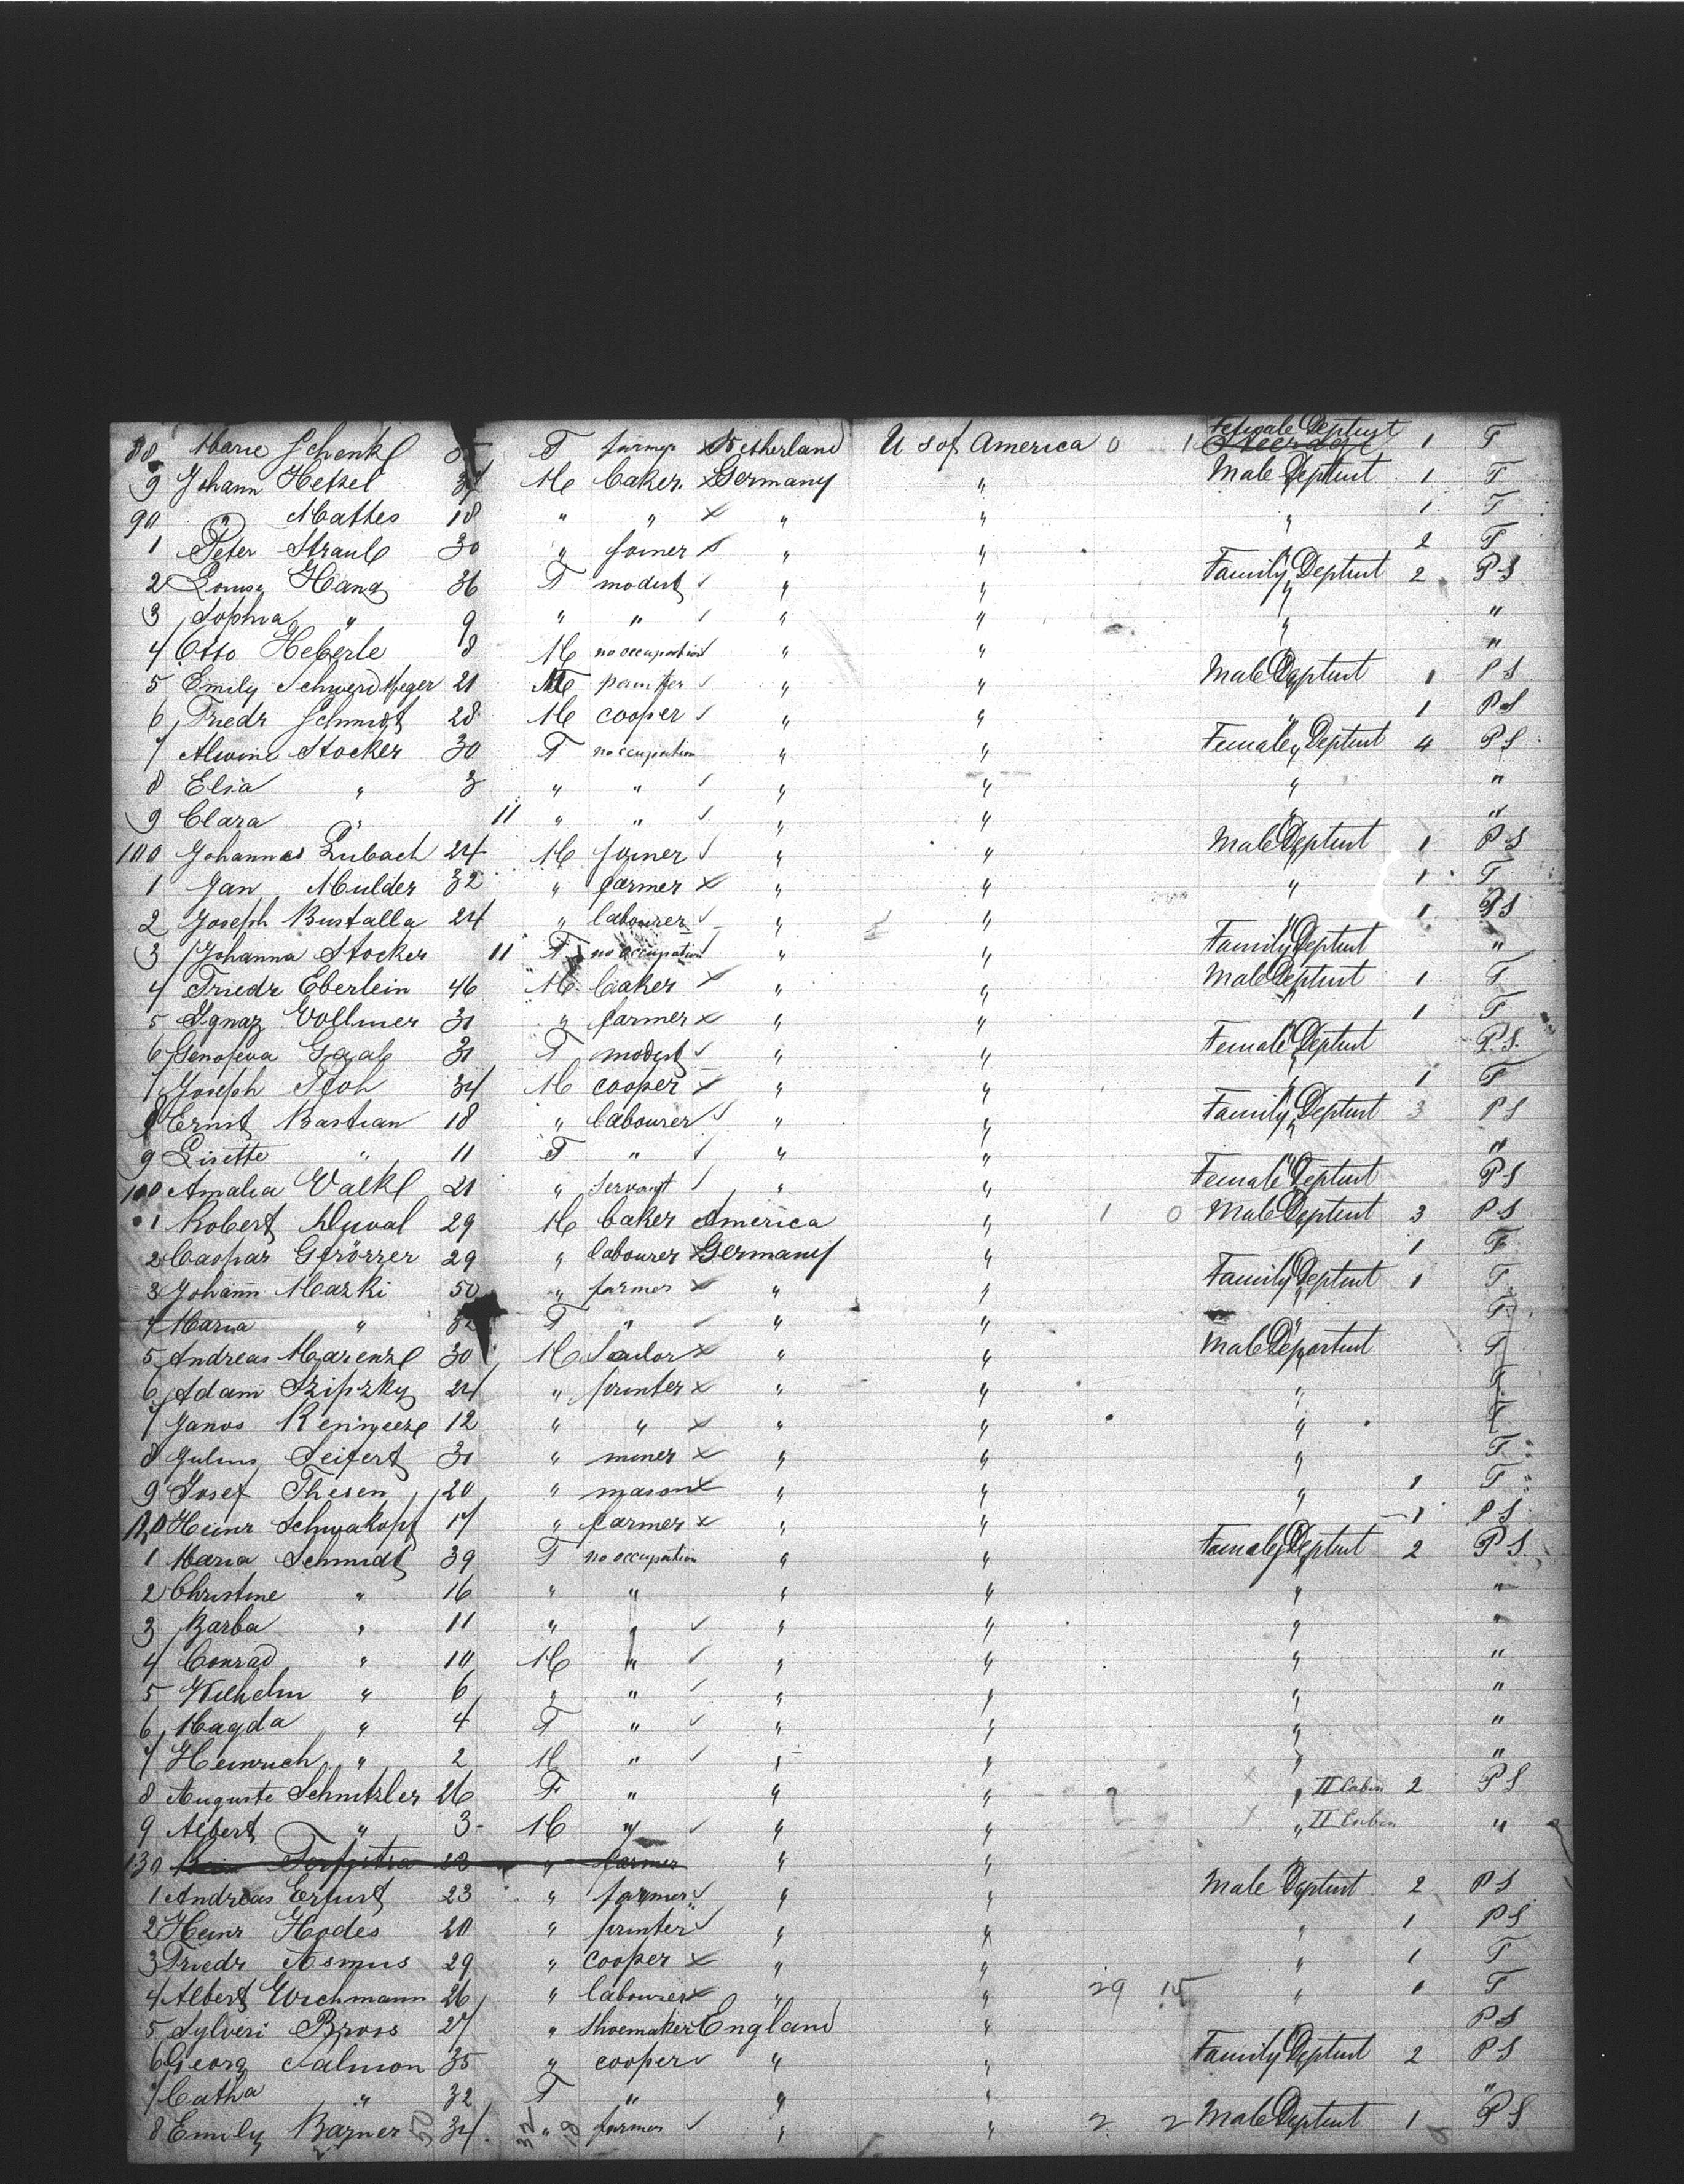 88 Marie Schenkl F farmer Netherland U S of America 0 1 Female Deptmt 1 T
9 Johann Hetzel M baker × Germany " Male Deptmt 1 T
90 " Mattes 18 " " × " " " 1 T
1 Peter Straub 30 " joiner " " " 2 T
2 Louise Hang 36 F modist ✓ " " Family Deptmt 2 P S
3 Sophia " 9 " " ✓ " " " "
4 Otto Heberle 8 M no occupation " " " "
5 Emily 21 M painter ✓ " " Male Deptmt 1 P S
6 Friedr Schmidt 28 M cooper ✓ " " " 1 P S
7 Alwine Stocker 30 F no occupation " " Female Deptmt 4 P S
8 Elsa " 3 " " ✓ " " " "
9 Clara " 11 " " ✓ " " " "
100 Johannes Lubach 24 M joiner ✓ " " Male Deptmt 1 P S
1 Jan Mulder 32 " farmer × " " " 1 T
2 Joseph Bustalla 24 " labourer ✓ " " " 1 P S
3 Johanna Stocker 11 F no occupation " " Family Deptmt "
4 Friedr Eberlein 46 M baker × " " Male Deptmt 1 T
5 Ignaz Vollmer 31 " farmer × " " " 1 T
6 Genofeva Gaab 31 F modist ✓ " " Female Deptmt P. S.
7 Joseph 34 M cooper × " " " 1 T
8 Ernst Bastian 18 " labourer ✓ " " Family Deptmt 3 P S
9 Lisette " 11 F " ✓ " " " "
100 Amalia 21 " servant ✓ " " Female Deptmt P S
1 Robert Duval 29 M baker America " 1 0 Male Deptmt 3 P S
2 Caspar Gfrörrer 29 " labourer × Germany " " 1 T
3 Johann Mazki 50 " farmer × " " Family Deptmt 1 T
4 Maria " F " ✓ " " " T
5 Andreas 30 M Sailor × " " Male Deportmt T
6 Adam Szipzky 24 " printer × " " " T
7 Janos 12 " " × " " " T
8 Julius Seifert 31 " miner × " " " T
9 Josef Thesen 20 " mason × " " " 1 T
120 Heinr Schwakopf 17 " farmer × " " " 1 P S
1 Maria Schmidt 39 F no occupation " " Female Deptmt 2 P S
2 Christine " 16 " " " " " "
3 Barba " 11 " " ✓ " " " "
4 Conrad " 10 M " ✓ " " " "
5 Wilhelm " 6 " " ✓ " " " "
6 Magda " 4 F " ✓ " " " "
7 Heinrich " 2 M " ✓ " " " "
8 Auguste Schnitzler 26 F " " " 2 " II Cabin 2 P S
9 Albert " 3 M " ✓ " " " II Cabin "
130 23 " farmer " "
1 Andreas Erfurt 23 " farmer ✓ " " Male Deptmt 2 P S
2 Heinr Hodes 20 " printer ✓ " " " 1 P S
3 Friedr Asmus 29 " cooper × " " " 1 T
4 Albert Wichmann 26 " labourer × " " 29 15 " 1 T
5 Sylveri Bross 27 " Shoemaker England " P S
6 Georg Salmon 35 " cooper ✓ " " Family Deptmt 2 P S
7 Catha " 32 F " " " "
8 Emily Bazner 34 " farmer ✓ " " 2 2 Male Deptmt 1 P S
50 32 18